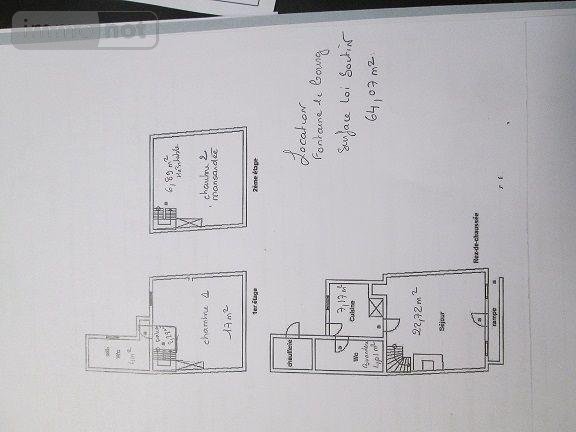 immonot
Location
Fontaine le Bourg
Surface Loi Boutin
64,07 m².
6,89 m²
chambre 2
mansardée
2ème étage
sdb
Wc
4 m²
chambre 1
17 m²
1er étage
chaufferie
Wc
7,17 m²
Cuisine
22,72 m²
Séjour
rampe
Rez-de-chaussée